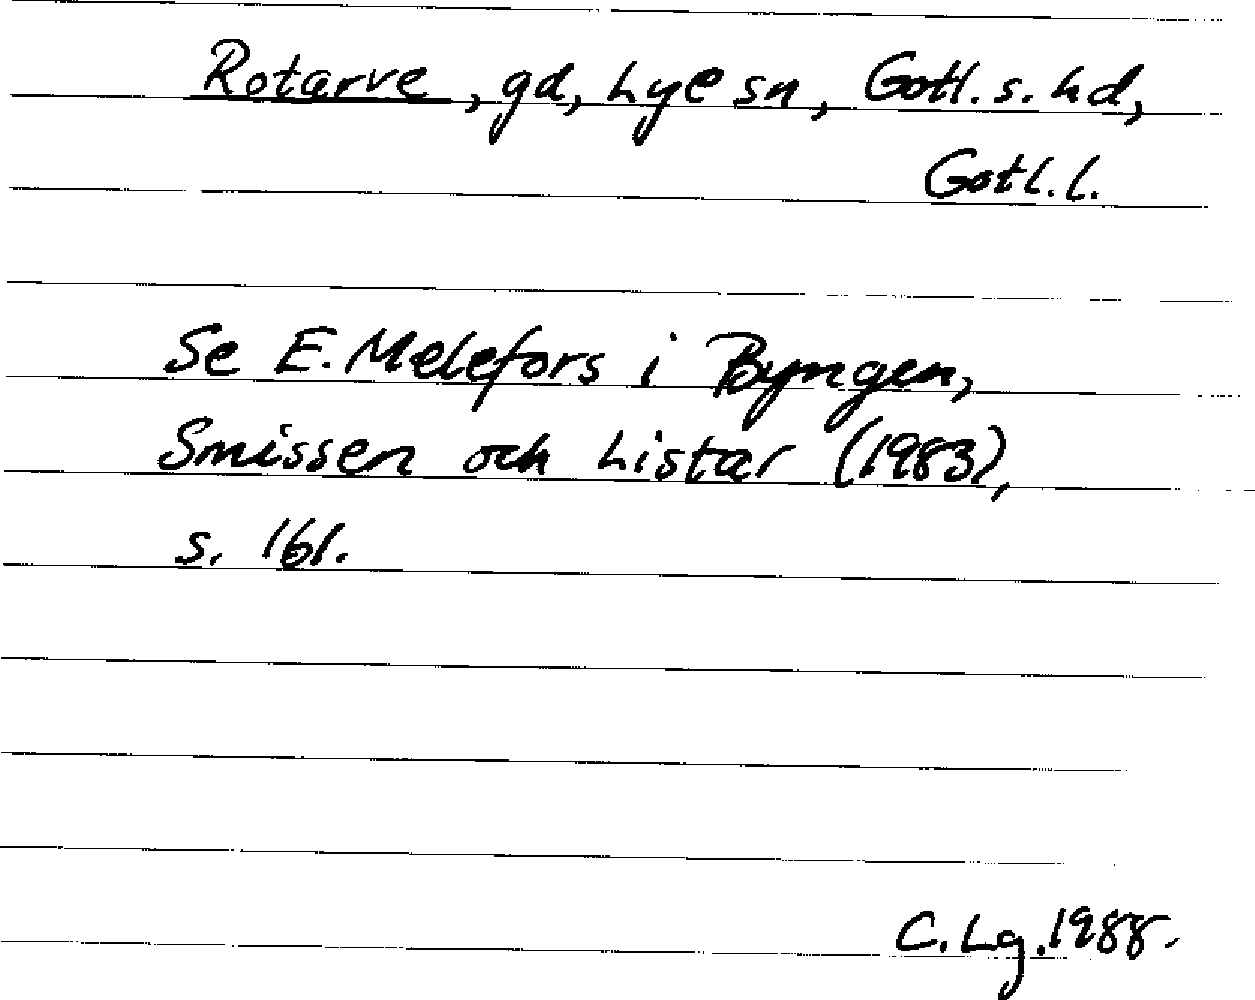 Rotarve, gd, Lye sn, Gotl. s. hd,
Gotl. l.
Se E. Melefors i Byngen,
Smissen och Listar (1983),
s. 161.
C. Lg. 1988.